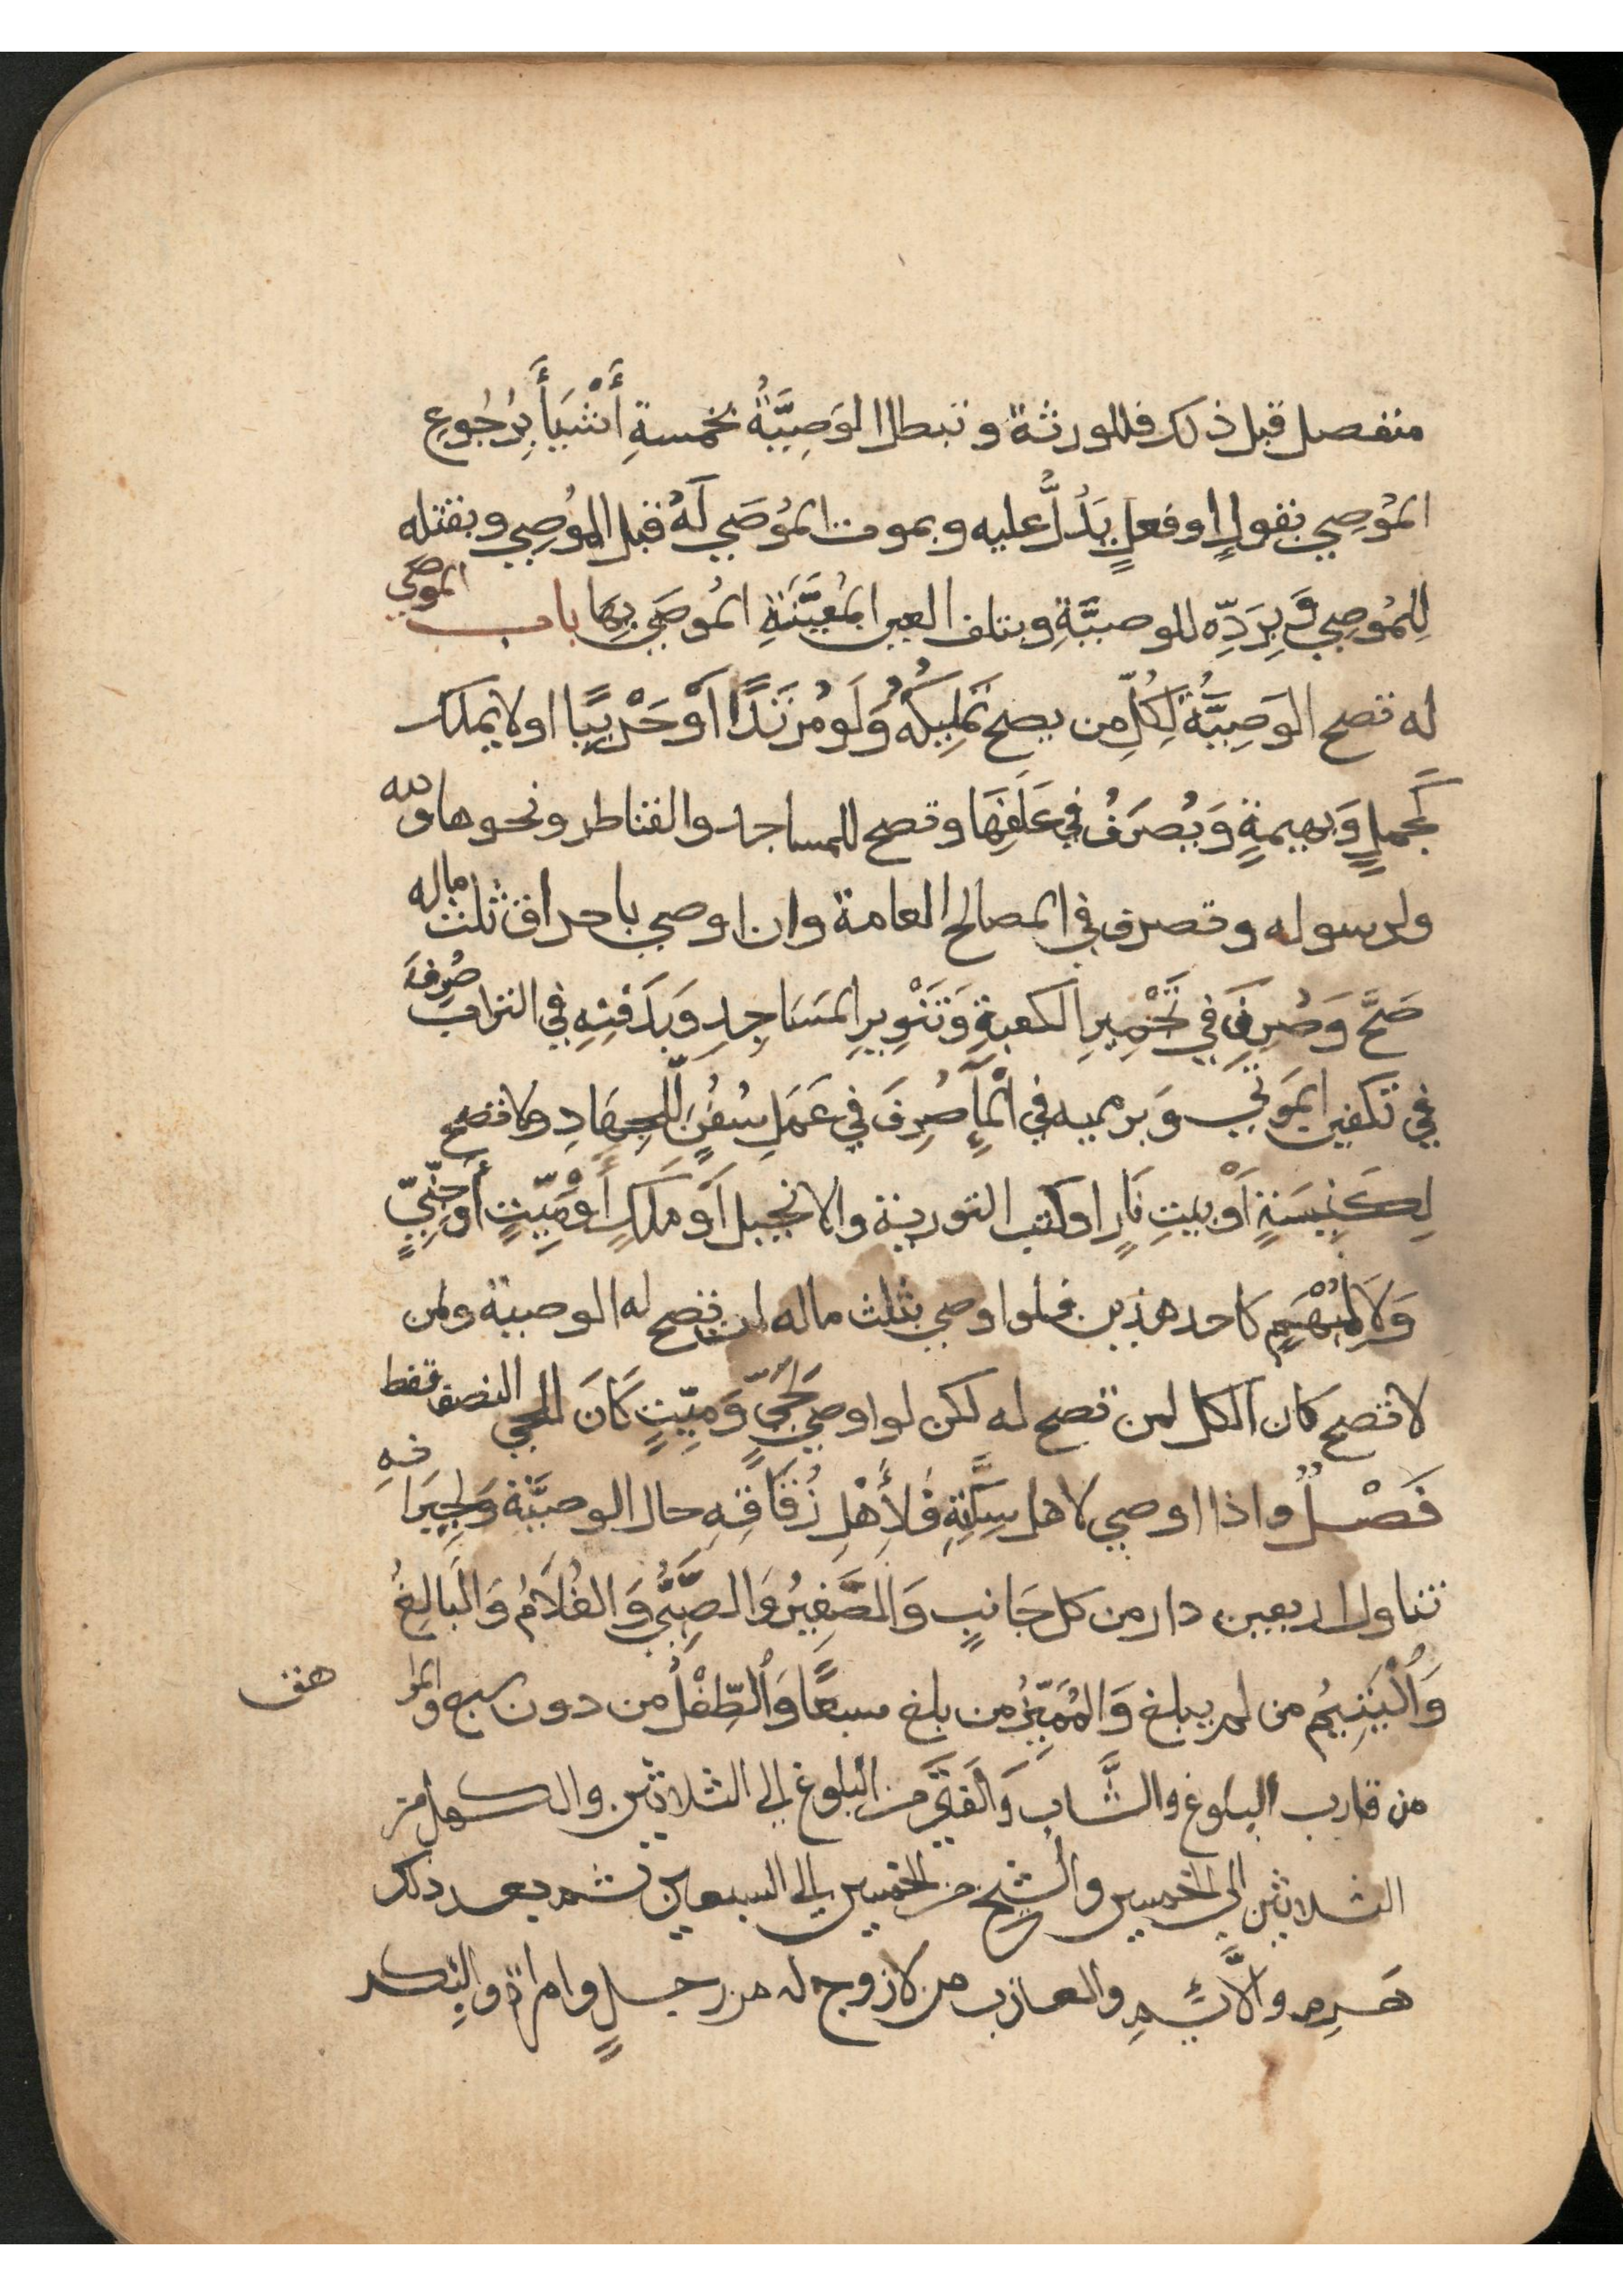 منفصل قبل ذلك فللورثة وتبطل الوَصِيَّةُ بخمسةِ أَشْيَأَ بِرُجُوعِ
المُوصِي بقولٍ اوفعلٍ يَدُلُّ عليه وبموت المُوصَي لَهُ قبل المُوصِي وبقتله
لِلمُوصِي وَبِرَدِّه للوصيَّةِ وبتلف العين المُعَيَّنَةِ المُوصَي بِهَا باب الموصَي
له تصح الوَصِيَّةُ لِكُلِّ من يصح تَمْلِيكُهُ وَلَو مُرْتَدًّا أَوْ حَرْبِيًّا اولا يملك
كَحملٍ وَبهيمةٍ وَيُصرَفُ في عَلَفِهَا وتصح للمساجد والقناطر ونحوها ولله
ولرسوله وتصرف في المصالح العامة وان اوصي باحراق ثلث ماله
صَحَّ وَصُرِفَ في تَجْمِيرِ الكعبةِ وَتَنْوِيرِ المَسَاجِدِ وَبِدَفْنِهِ في التراب صُرِفَ
في تكفين المَوتي وَبرميه في المأِ صُرِفَ في عَمَلِ سُفُنٍ لِلجِهَادِ ولا تصح
لِكَنِيسَةٍ أَوْ بيتِ نَارٍ اوكتب التورية والانجيل أَو مَلَكٍ أَوْ مَيِّتٍ أَو جِنِّيٍّ
وَلاَ لِمُبْهَمٍ كاحد هذين فلو اوصي بثلث ماله لمن تصح له الوصية ولمن
لا تصح كان الكل لمن تصح له لكن لو اوصي لِحَيٍّ وَمَيِّتٍ كَانَ للحي النصف فقط
فَصْلٌ واذا اوصي لاهل سِكَّتِهِ فَلأَهْلِ زُقَاقِهِ حال الوصيَّة وَلِجِيرَانِهِ
تناول اربعين دار من كل جَانبٍ وَالصَّغِيرُ وَالصَّبِيُّ وَالغُلاَمُ وَالبَالِغُ
وَالْيَتِيمُ من لم يبلغ وَالمُمَيِّزُ من بلغ سبعًا وَالطِّفْلُ من دون سبع والمراهق
من قارب البلوغ والشَّاب وَالفَتَي من البلوغ الي الثلاثين والكهل من
الثلاثين الي الخمسين والشيخ من الخمسين الي السبعين ثم بعد ذلك
هَرِم والأَيِّمِ والعازب من لا زوج له من رجلٍ وامراة والبكر